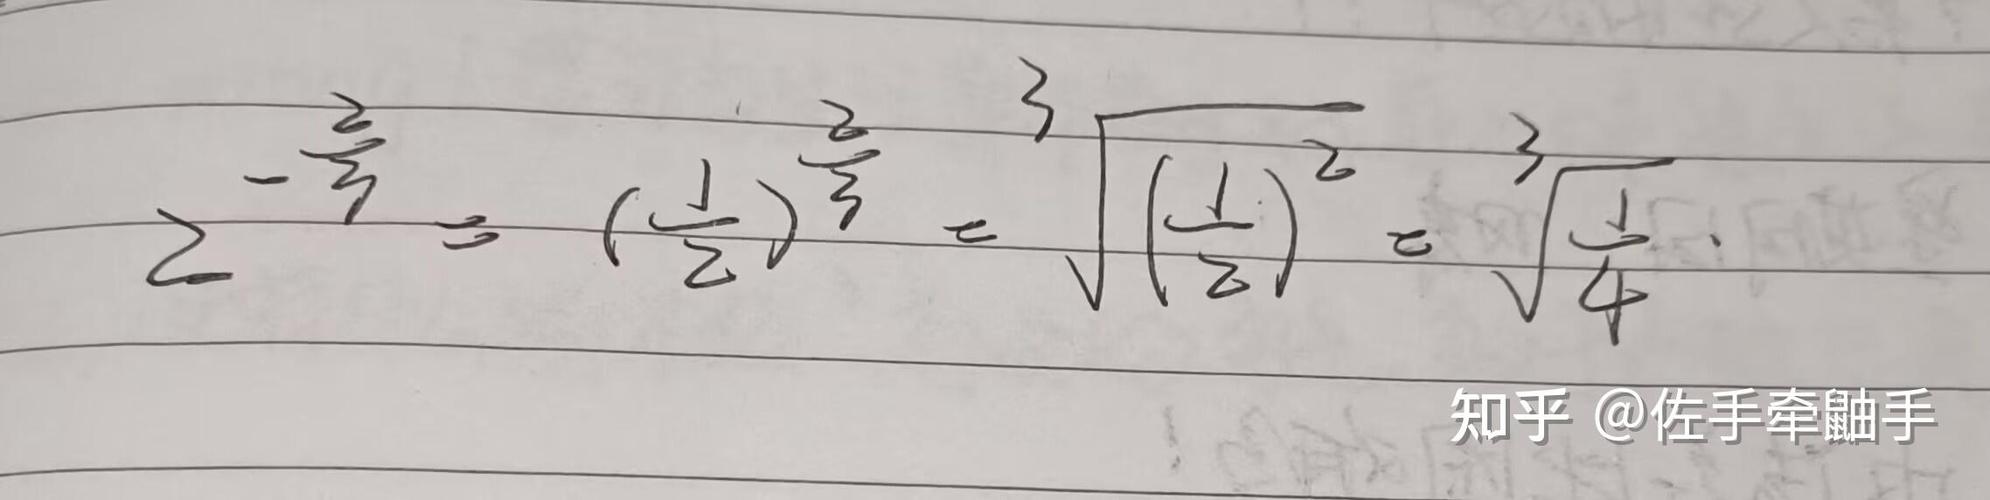 2^{-\frac{2}{3}} = (\frac{1}{2})^{\frac{2}{3}} = \sqrt[3]{(\frac{1}{2})^2} = \sqrt[3]{\frac{1}{4}}.
知乎 @佐手牵鼬手